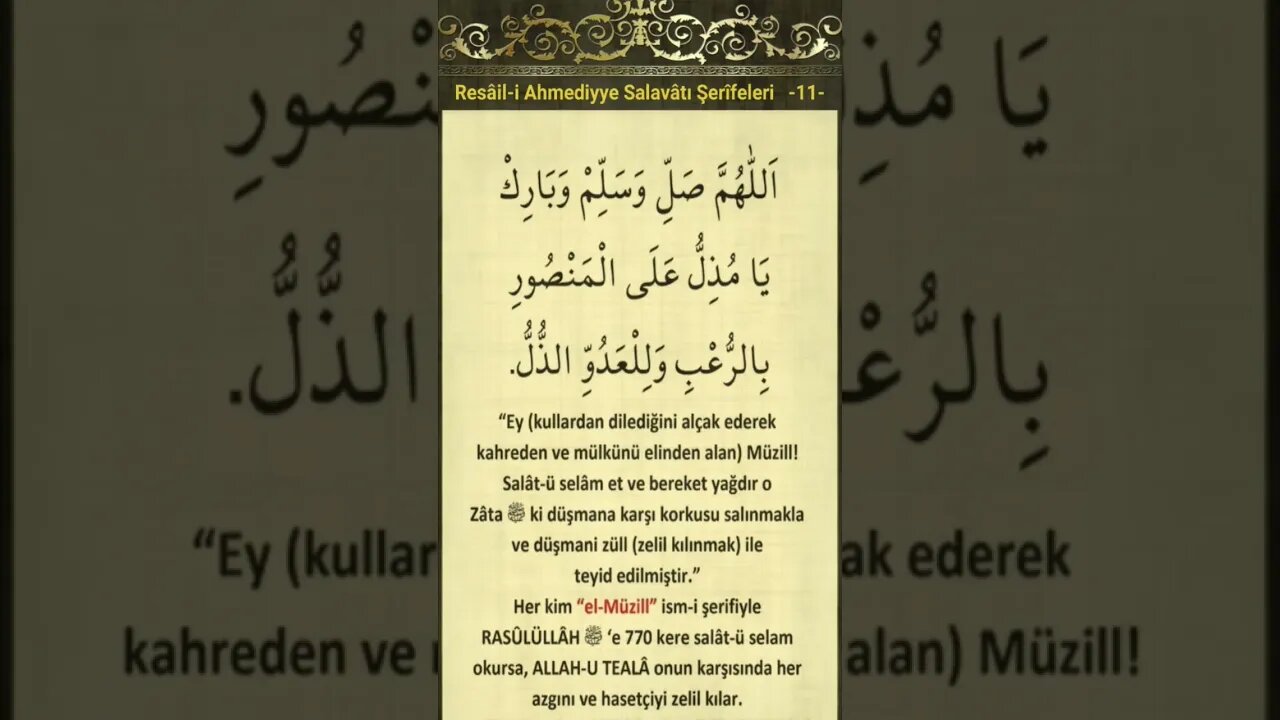 Resâil-i Ahmediyye Salavâtı Şerîfeleri -11-
اَللّٰهُمَّ صَلِّ وَسَلِّمْ وَبَارِكْ
يَا مُذِلُّ عَلَى الْمَنْصُورِ
بِالرُّعْبِ وَلِلْعَدُوِّ الذُّلُّ.
“Ey (kullardan dilediğini alçak ederek
kahreden ve mülkünü elinden alan) Müzill!
Salât-ü selâm et ve bereket yağdır o
Zâta ﷺ ki düşmana karşı korkusu salınmakla
ve düşmani züll (zelil kılınmak) ile
teyid edilmiştir.”
Her kim “el-Müzill” ism-i şerifiyle
RASÛLÜLLÂH ﷺ ‘e 770 kere salât-ü selam
okursa, ALLAH-U TEALÂ onun karşısında her
azgını ve hasetçiyi zelil kılar.